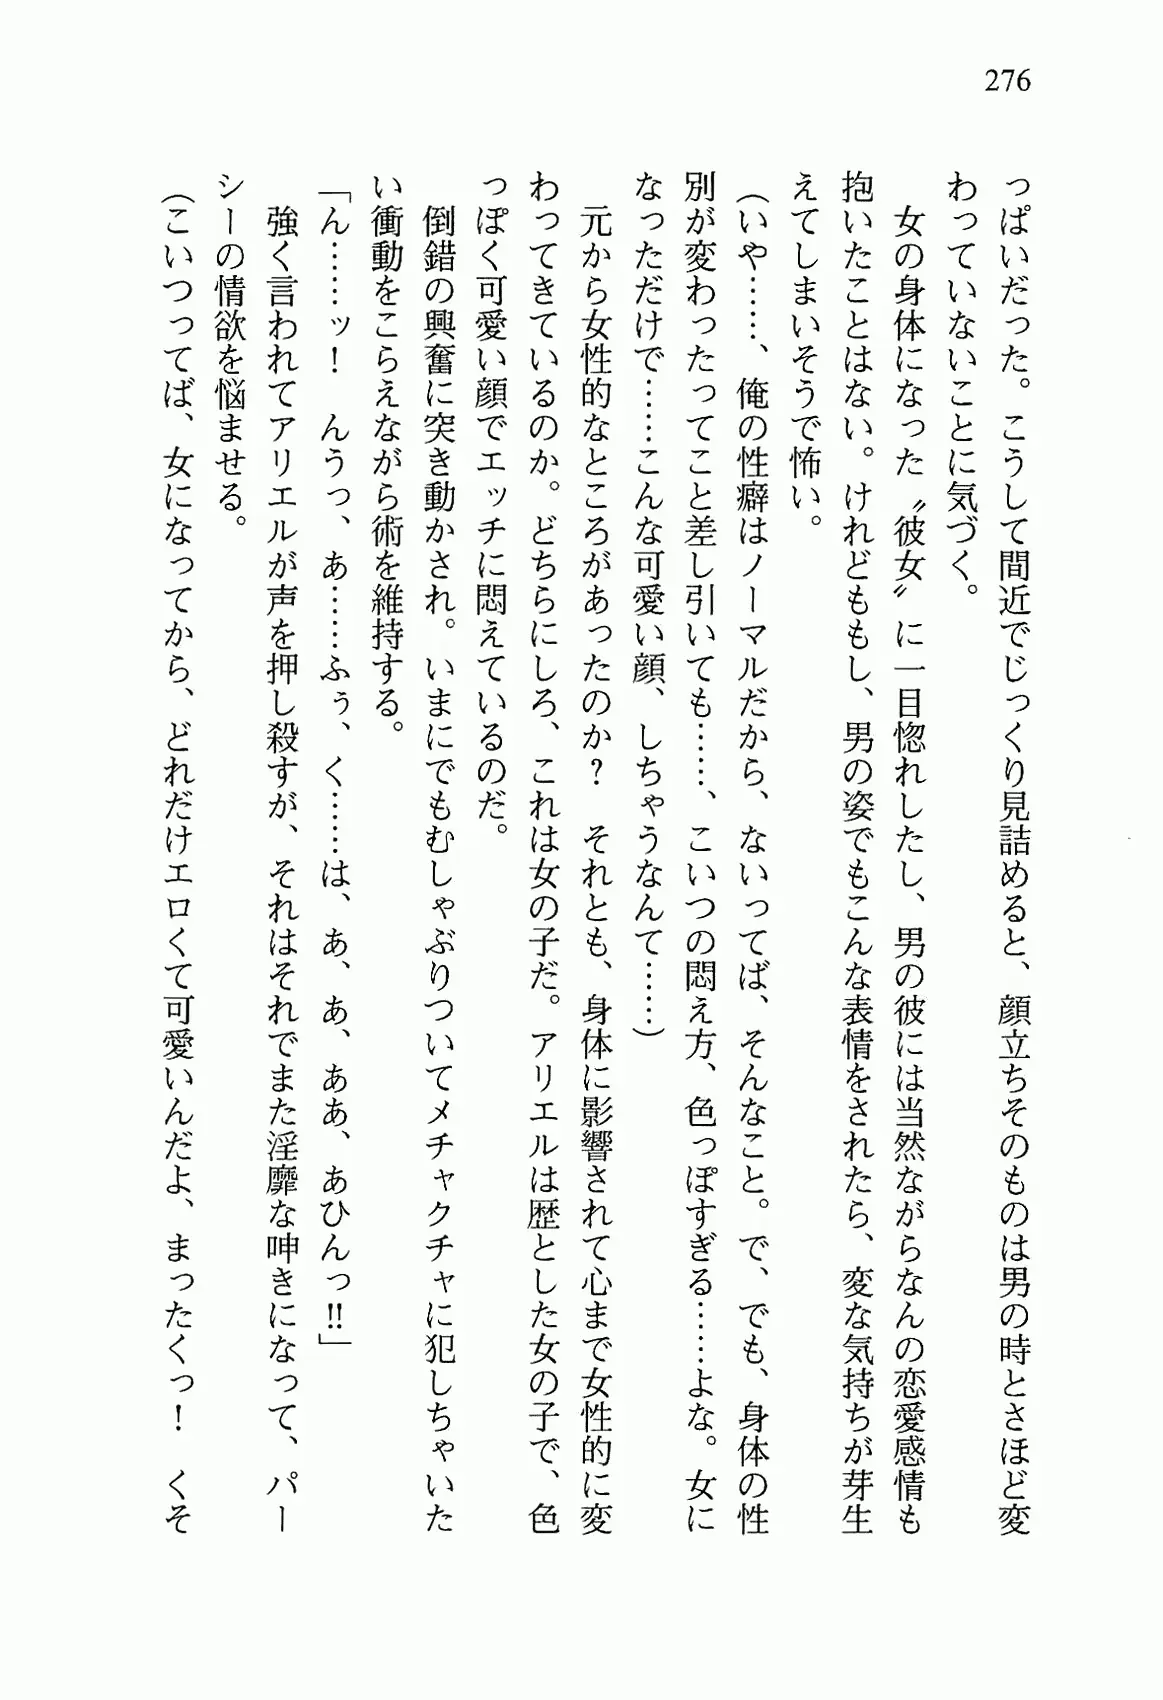 276
っぱいだった。こうして間近でじっくり見詰めると、顔立ちそのものは男の時とさほど変
わっていないことに気づく。
　女の身体になった〝彼女〟に一目惚れしたし、男の彼には当然ながらなんの恋愛感情も
抱いたことはない。けれどももし、男の姿でもこんな表情をされたら、変な気持ちが芽生
えてしまいそうで怖い。
（いや……、俺の性癖はノーマルだから、ないってば、そんなこと。で、でも、身体の性
別が変わったってこと差し引いても……、こいつの悶え方、色っぽすぎる……よな。女に
なっただけで……こんな可愛い顔、しちゃうなんて……）
　元から女性的なところがあったのか？　それとも、身体に影響されて心まで女性的に変
わってきているのか。どちらにしろ、これは女の子だ。アリエルは歴とした女の子で、色
っぽく可愛い顔でエッチに悶えているのだ。
　倒錯の興奮に突き動かされ。いまにでもむしゃぶりついてメチャクチャに犯しちゃいた
い衝動をこらえながら術を維持する。
「ん……ッ！　んうっ、あ……ふぅ、く……は、あ、あ、ああ、あひんっ!!」
　強く言われてアリエルが声を押し殺すが、それはそれでまた淫靡な呻きになって、パー
シーの情欲を悩ませる。
（こいつってば、女になってから、どれだけエロくて可愛いんだよ、まったくっ！　くそ